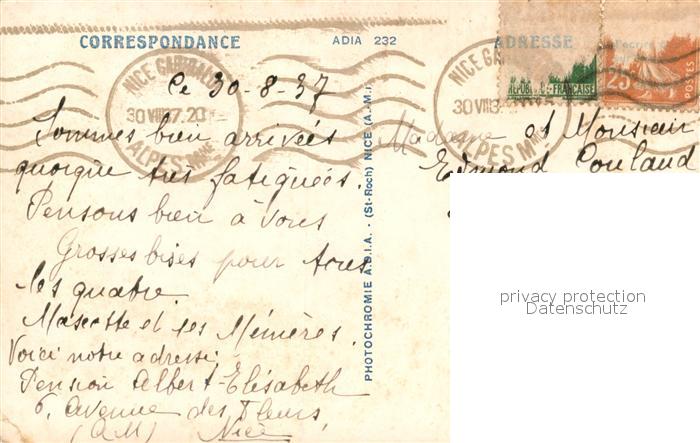 CORRESPONDANCE
ADIA 232
ADRESSE
NICE GARE
30 VIII 37.20
ALPES MMES
NICE GARE
30 VIII 3
ALPES MMES
RÉPUBLIQUE FRANÇAISE
25
POSTES
Ce 30-8-37
Sommes bien arrivées
quoique très fatiguées.
Pensons bien à vous
Grosses bises pour tous
les quatre.
Mascotte et ses Mémères.
Voici notre adresse:
Pension Albert-Elisabeth
6, avenue des Fleurs,
(A M) Nice
PHOTOCHROMIE A.D.I.A. - (St-Roch) NICE (A.M.)
Madame et Monsieur
Edmond Couland
privacy protection
Datenschutz